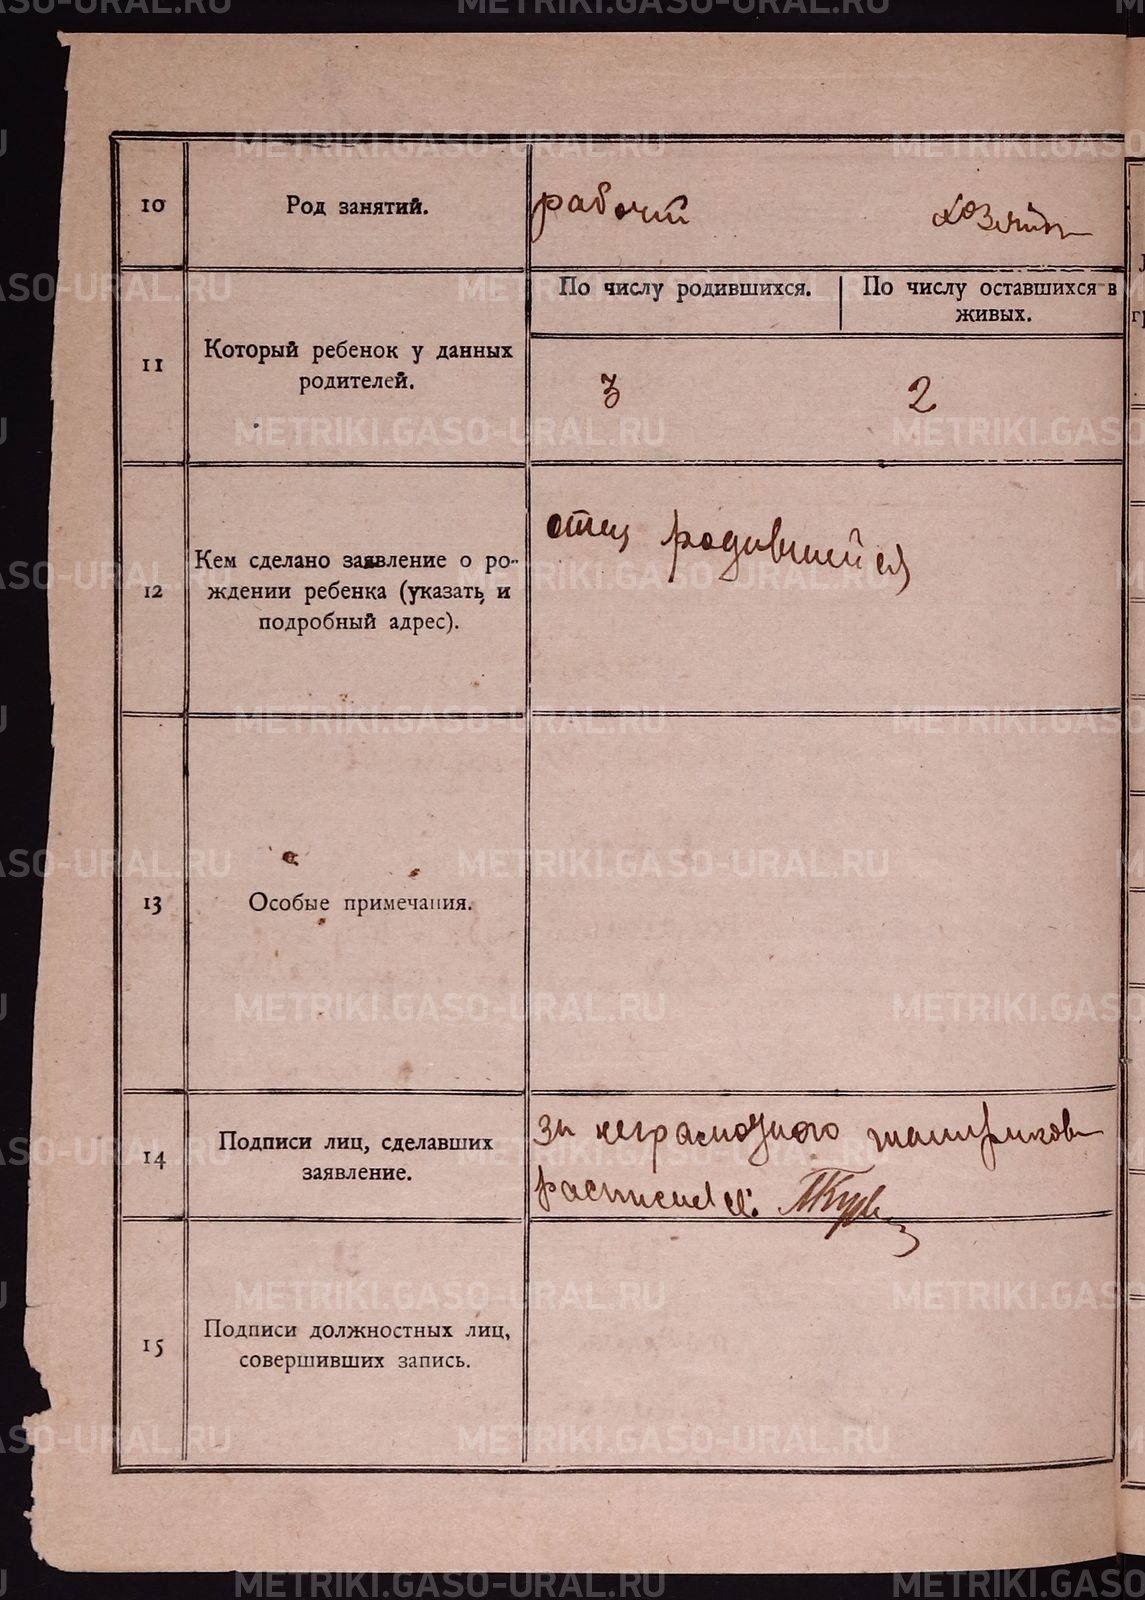 10
Род занятий.
рабочий
11
Который ребенок у данных
родителей.
По числу родившихся.
По числу оставшихся в
живых.
3
2
12
Кем сделано заявление о ро-
ждении ребенка (указать и
подробный адрес).
отец родившейся
13
Особые примечания.
14
Подписи лиц, сделавших
заявление.
за неграмотного
расписался:
15
Подписи должностных лиц,
совершивших запись.
METRIKI.GASO-URAL.RU